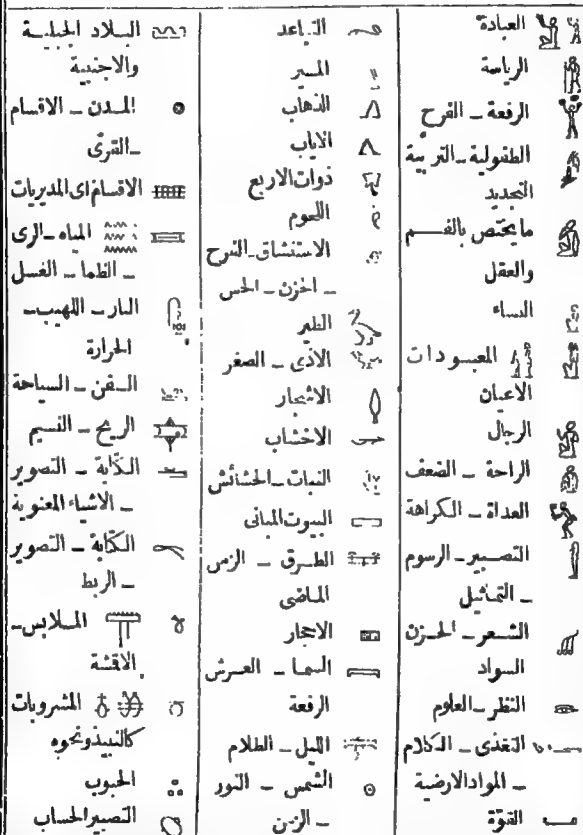 العبادة
الرياسة
الرفعة ـ الفرح
الطفولية ـ التربية
التجديد
ما يختص بالفم
والعقل
النساء
المعبودات
الاعيان
الرجال
الراحة ـ الضعف
العداة ـ الكراهة
التصبير ـ الرسوم
ـ التماثيل
الشعر ـ الحزن
السواد
النظر ـ العلوم
التغذى ـ الكلام
ـ المواد الارضية
القوّة
التباعد
السير
الذهاب
الاياب
ذوات الاربع
اللحوم
الاستنشاق ـ الفرح
ـ الحزن ـ الحس
الطير
الاذى ـ الصغر
الاشجار
الاخشاب
النبات ـ الحشائش
البيوت المبانى
الطرق ـ الزمن
الماضى
الاحجار
السما ـ العرش
الرفعة
الليل ـ الظلام
الشمس ـ النور
ـ الزمن
البلاد الجبلية
والاجنبية
المدن ـ الاقسام
ـ القرى
الاقسام اى المديريات
المياه ـ الرى
ـ الظما ـ الغسل
النار ـ اللهيب ـ
الحرارة
السفن ـ السياحة
الريح ـ النسيم
الكتابة ـ التصوير
ـ الاشياء المعنوية
الكتابة ـ التصوير
ـ الربط
الملابس ـ
الاقشة
المشروبات
كالنبيذ ونحوه
الحبوب
التصبير الحساب